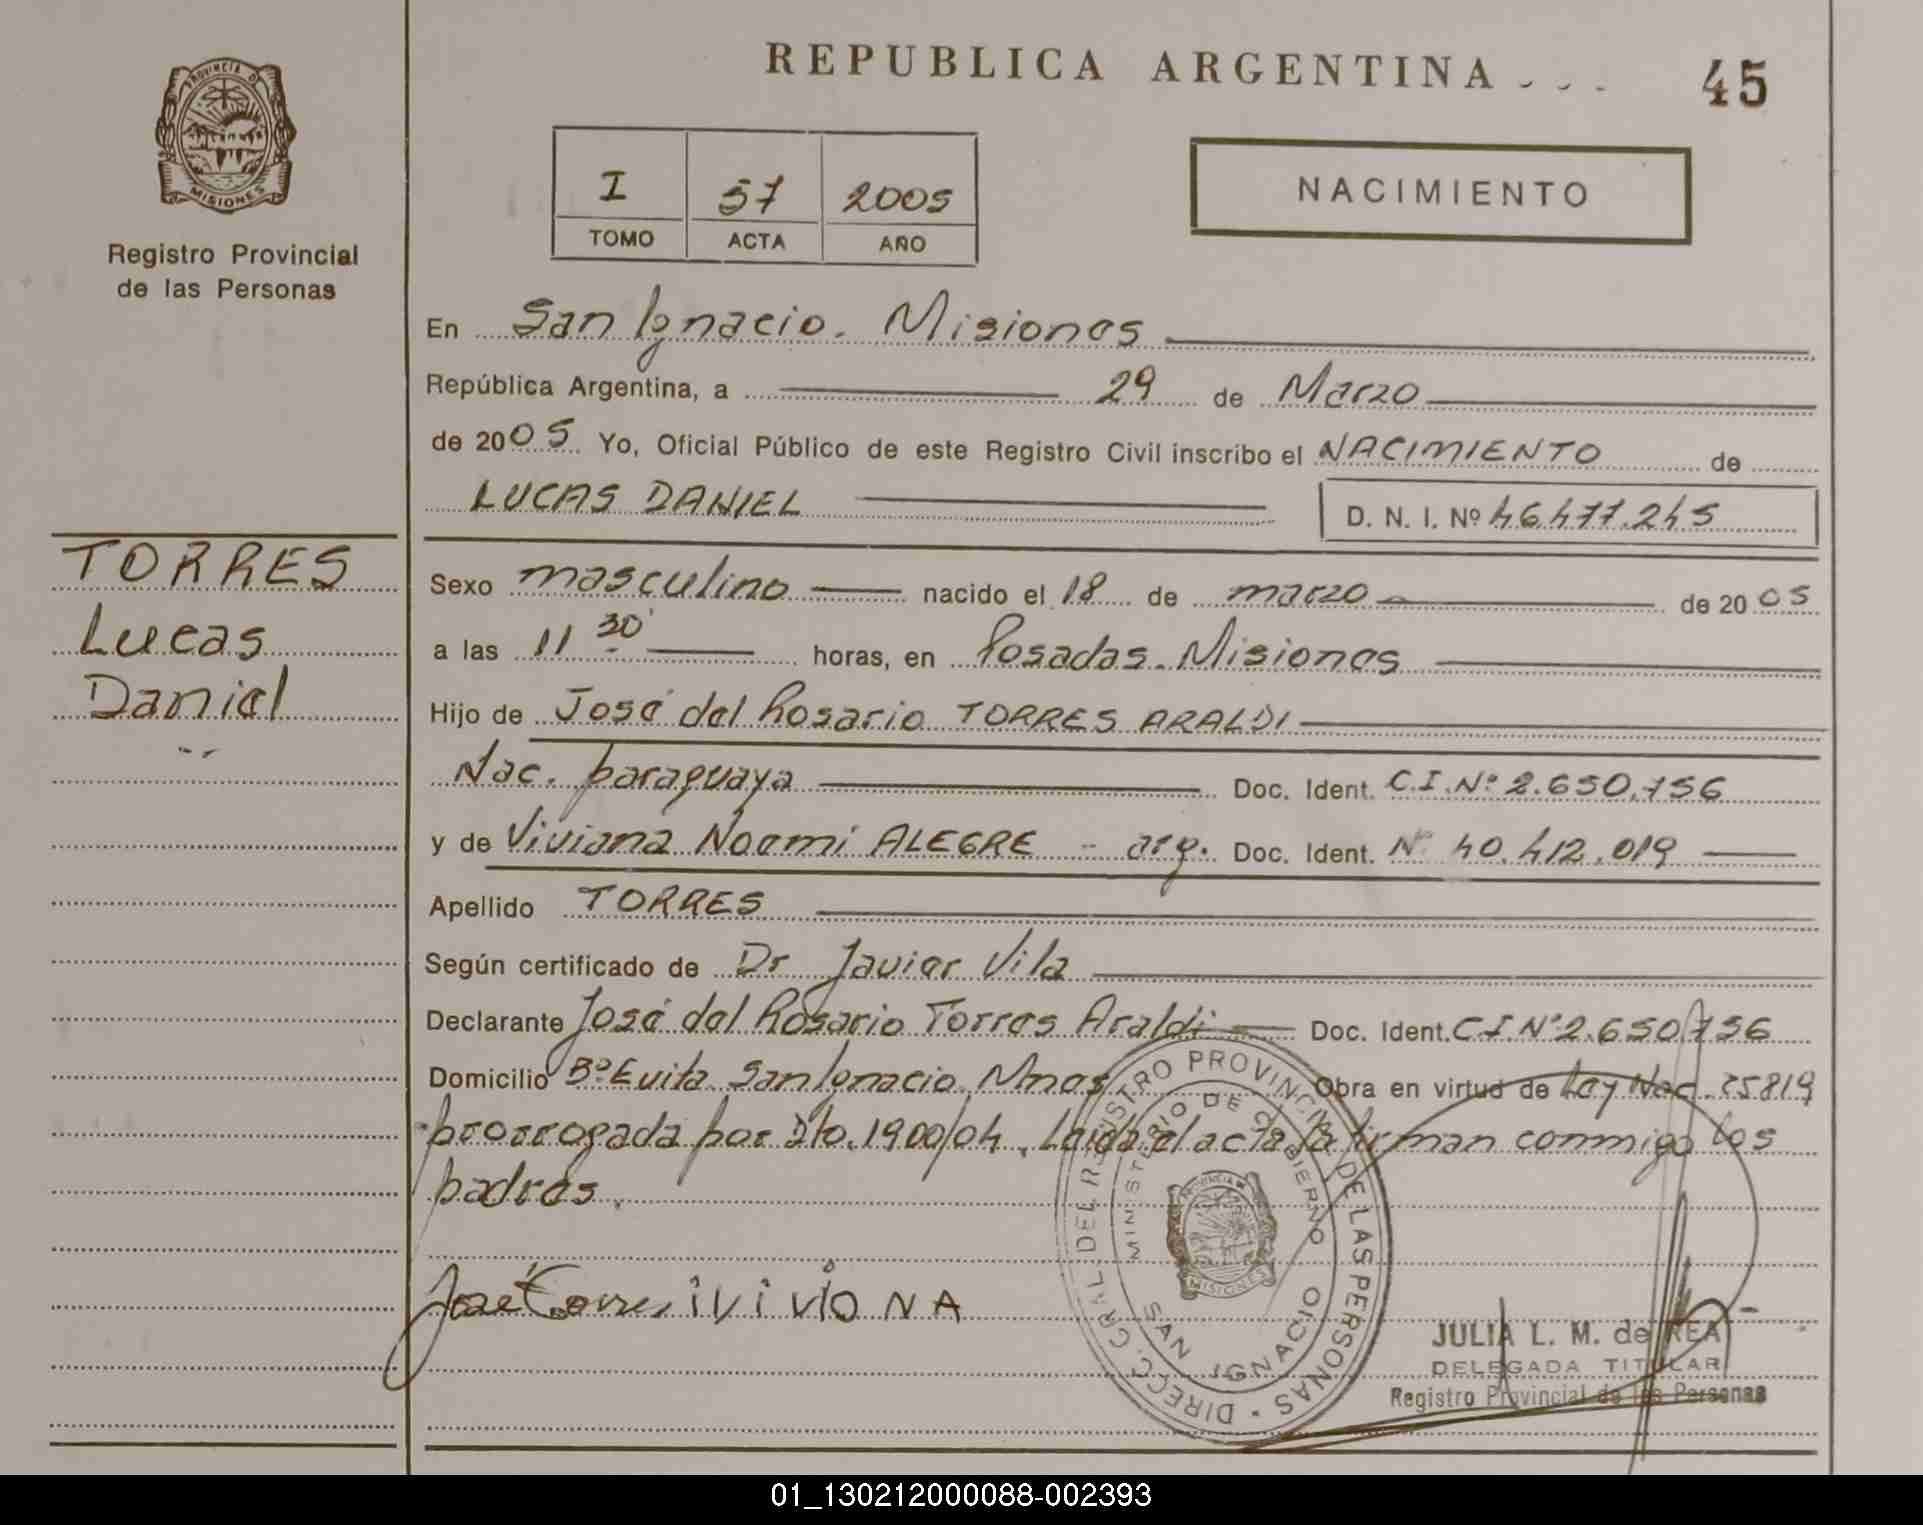 REPUBLICA ARGENTINA
45
PROVINCIA DE MISIONES
Registro Provincial
de las Personas
I 57 2005
TOMO ACTA AÑO
NACIMIENTO
En San Ignacio. Misiones
República Argentina, a 29 de Marzo
de 2005 Yo, Oficial Público de este Registro Civil inscribo el NACIMIENTO de
LUCAS DANIEL D. N. I. Nº 46.477.245
TORRES
Lucas
Daniel
Sexo masculino nacido el 18 de marzo de 2005
a las 11 30' horas, en Posadas. Misiones
Hijo de José del Rosario TORRES ARALDI
Nac. paraguaya Doc. Ident. C.I.Nº 2.650.756
y de Viviana Noemi ALEGRE - arg. Doc. Ident. Nº 40.412.019
Apellido TORRES
Según certificado de Dr Javier Vila
Declarante José del Rosario Torres Araldi Doc. Ident. C.I Nº 2.650.756
Domicilio Bº Evita San Ignacio Mnes Obra en virtud de Ley Nac. 25819
prorrogada por Dto. 1900/04. Leida el acta la firman conmigo los
padres.
José Torres iVi VIO NA
DIRECC. GRAL. DEL REGISTRO PROVINCIAL DE LAS PERSONAS
MINISTERIO DE GOBIERNO
SAN IGNACIO
JULIA L. M. de REA
DELEGADA TITULAR
Registro Provincial de las Personas
01_130212000088-002393